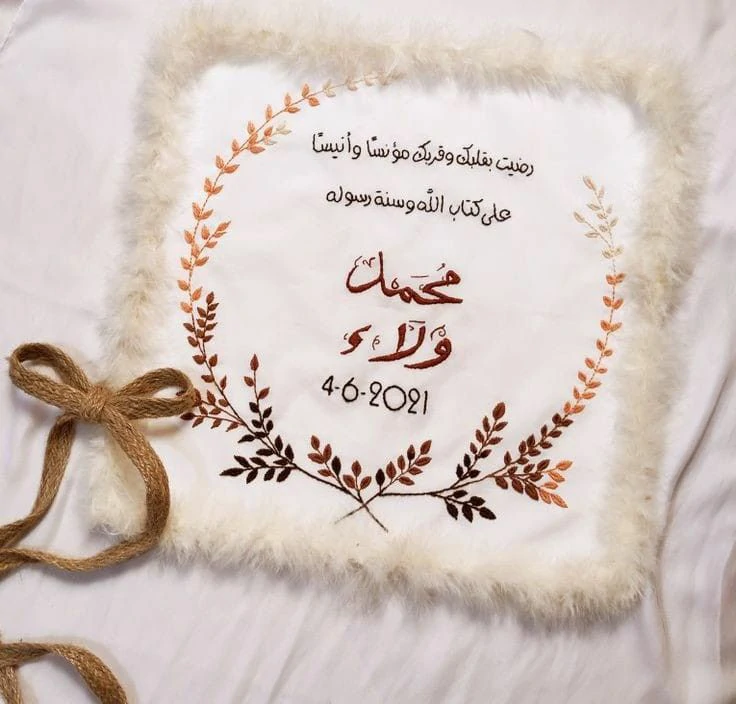 رضيت بقلبك وقربك مؤنسًا وأنيسًا
على كتاب الله وسنة رسوله
مُحَمد
وَلَاء
4-6-2021